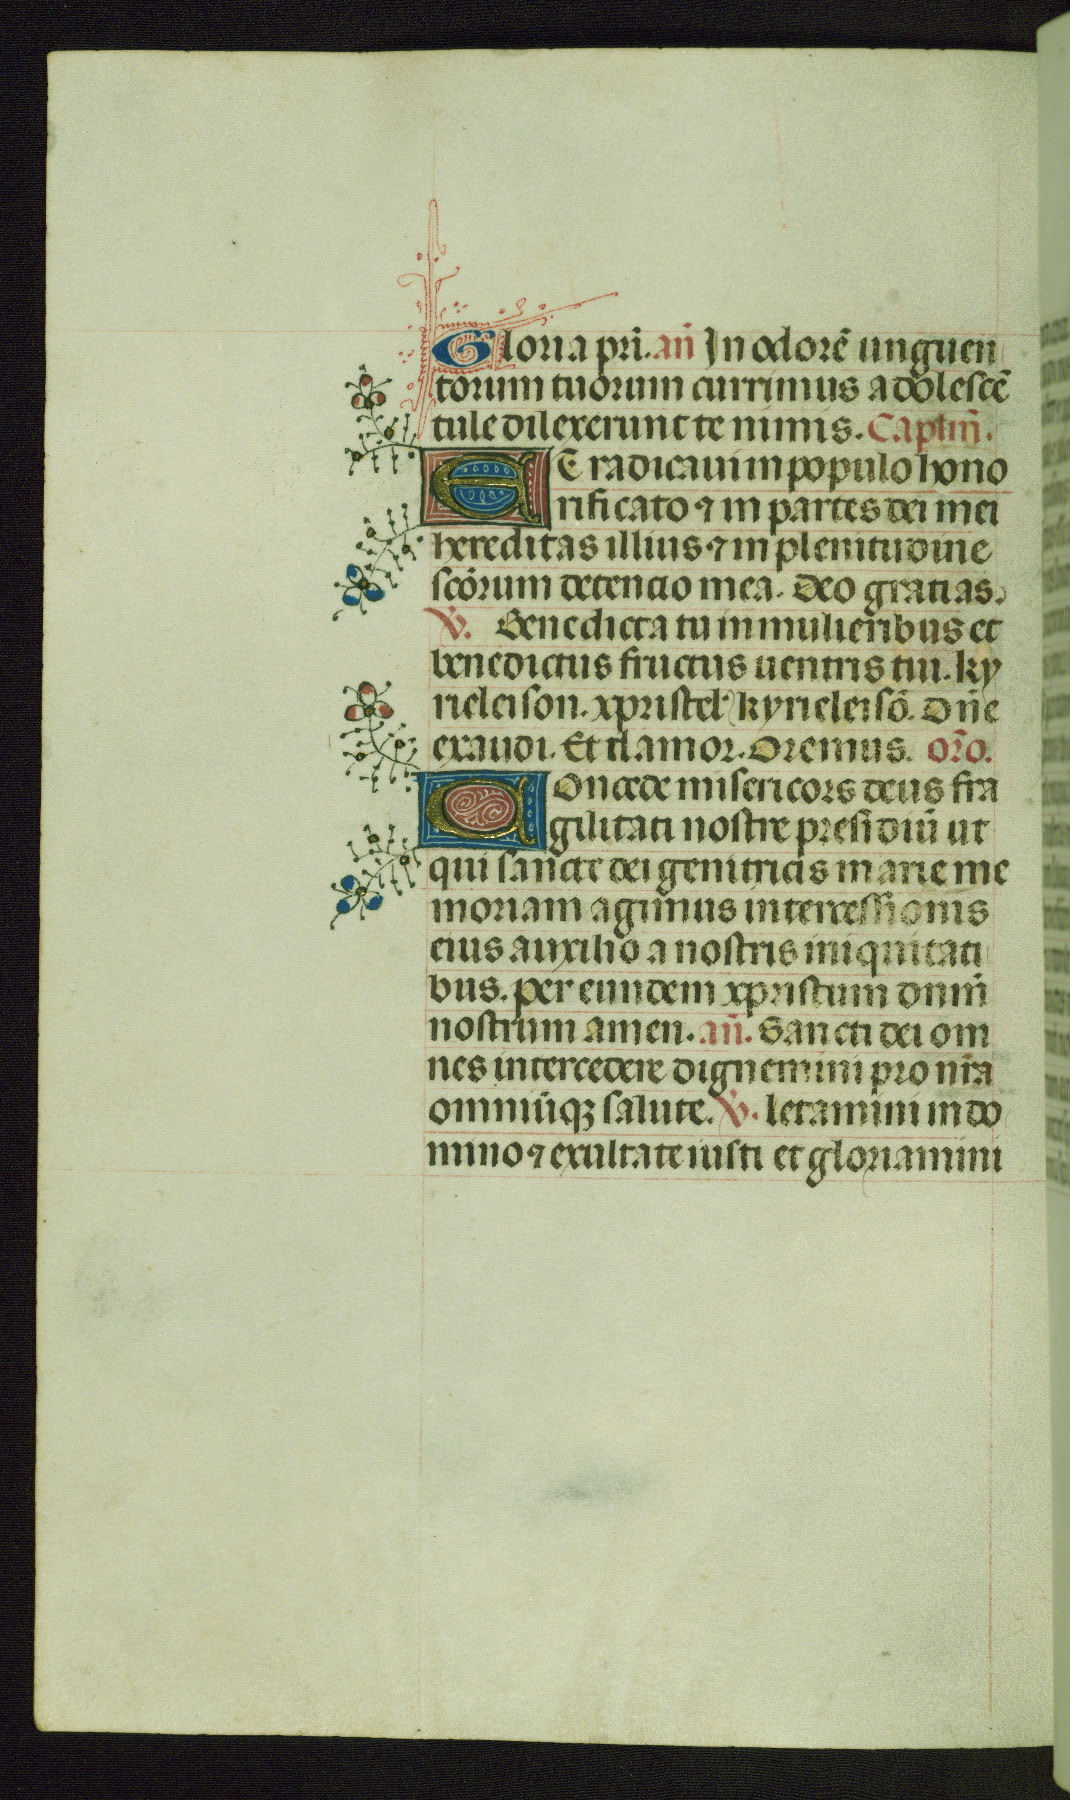 Gloria pri̅. an̅ In odore̅ unguen
torum tuorum currimus adolesce̅
tule dilexerunt te nimis. Caplm̅.
Et radicaui in populo hono
rificato ⁊ in partes dei mei
hereditas illius ⁊ in plenitudine
sco̅rum detencio mea. Deo gratias.
V̇. Benedicta tu in mulieribus et
benedictus fructus uentris tui. ky
rieleison. xpristel' kyrieleiso̅. Dn̅e
exaudi. Et clamor. Oremus. oro̅.
Concede misericors deus fra
gilitati nostre presidiu̅ ut
qui sancte dei genitricis marie me
moriam agimus intercessionis
eius auxilio a nostris iniquitati
bus. per eundem xpristum dnm̅
nostrum amen. an̅. Sancti dei om
nes intercedere dignemini pro nr̅a
omniu̅qꝫ salute. V̇. letamini in do
mino ⁊ exultate iusti et gloriamini